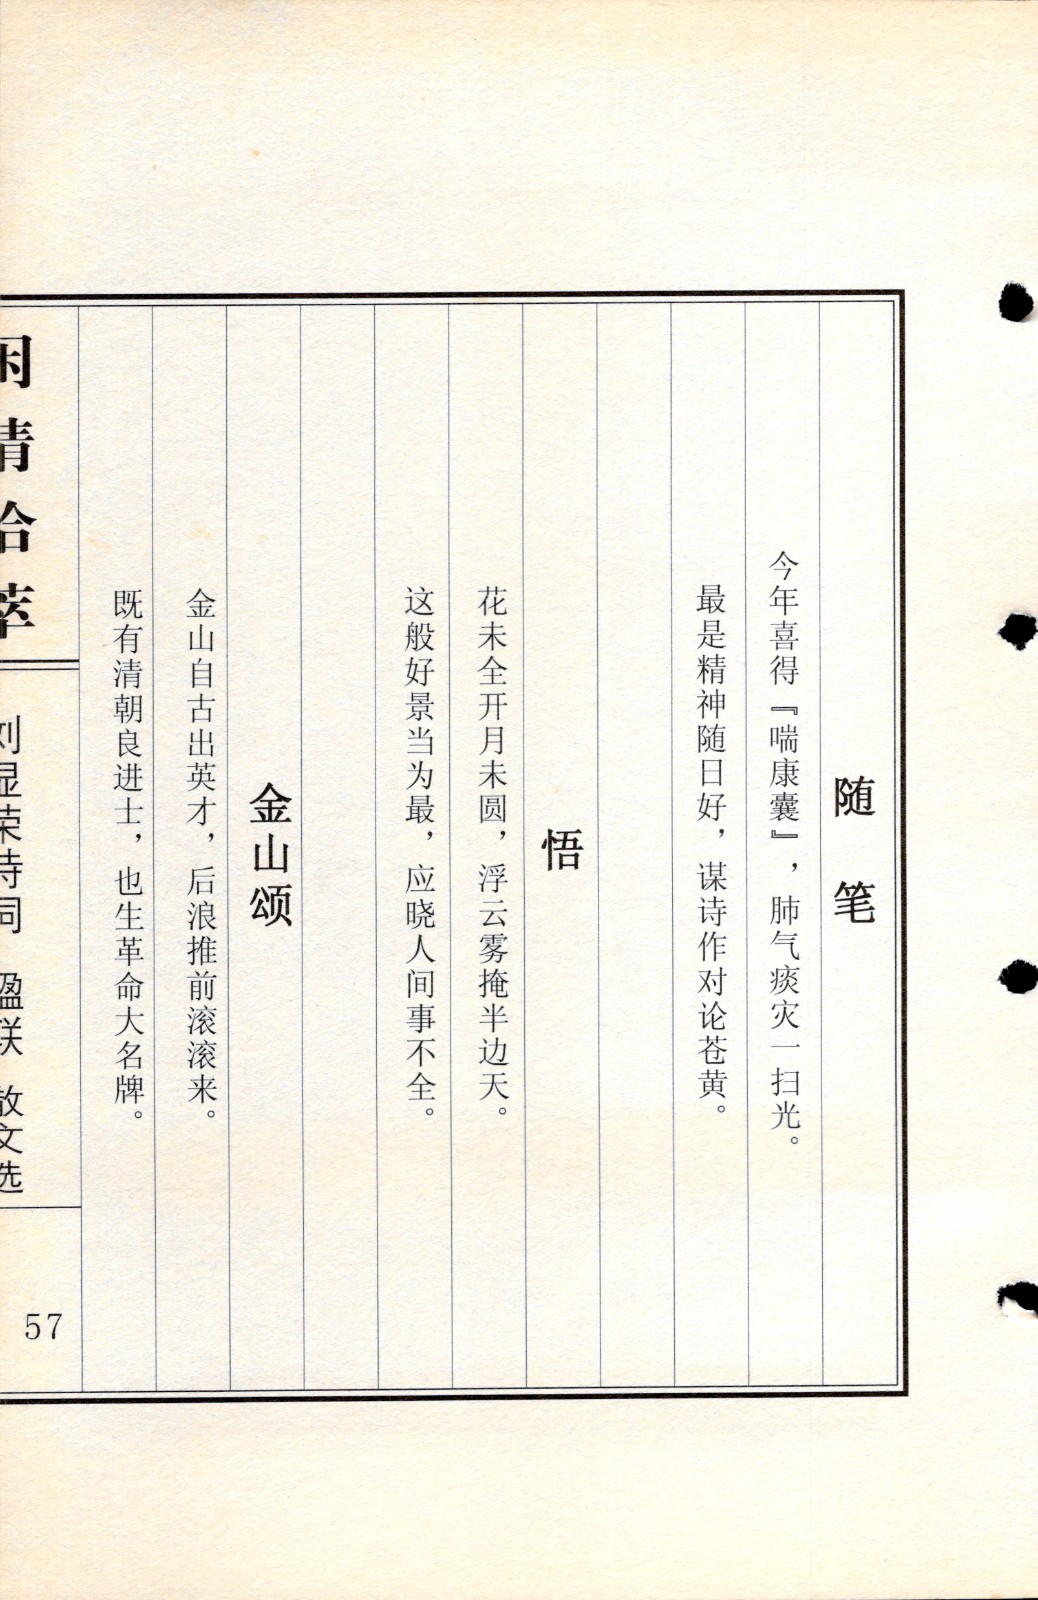 随笔
今年喜得『喘康囊』，肺气痰灾一扫光。
最是精神随日好，谋诗作对论苍黄。
悟
花未全开月未圆，浮云雾掩半边天。
这般好景当为最，应晓人间事不全。
金山颂
金山自古出英才，后浪推前滚滚来。
既有清朝良进士，也生革命大名牌。
拾萃
刘显荣诗词 盈联 散文选
57